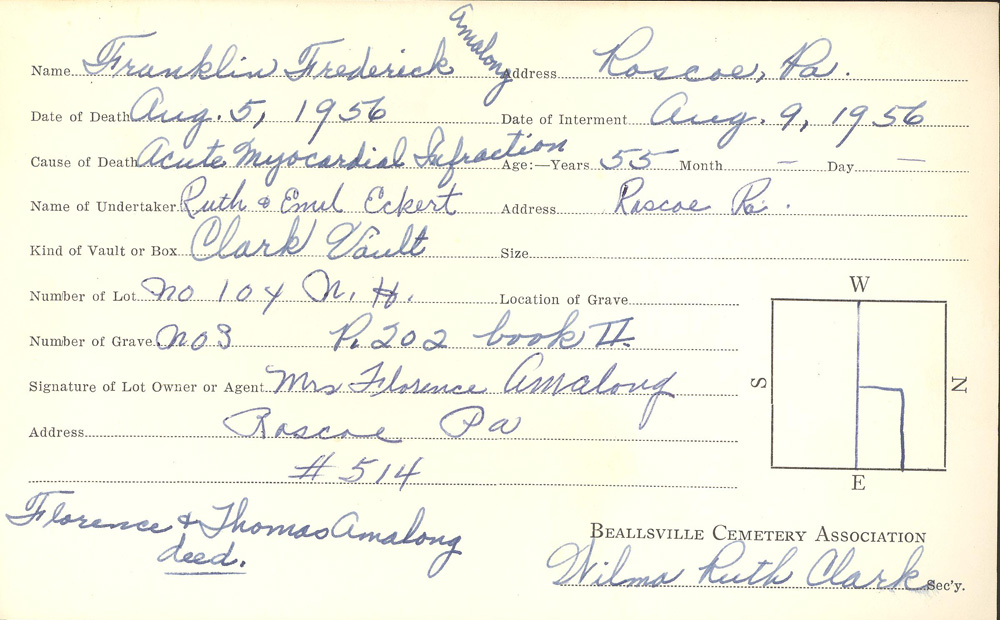 Name Franklin Frederick Amalong Address Roscoe, Pa.
Date of Death Aug. 5, 1956 Date of Interment Aug. 9, 1956
Cause of Death Acute Myocardial Infraction Age:—Years 55 Month — Day —
Name of Undertaker Ruth & Emil Eckert Address Roscoe Pa.
Kind of Vault or Box Clark Vault Size
Number of Lot No 104 N. H. Location of Grave
Number of Grave No 3 P. 202 book II.
Signature of Lot Owner or Agent Mrs Florence Amalong
Address Roscoe Pa
# 514
W
S
N
E
Florence & Thomas Amalong
deed.
BEALLSVILLE CEMETERY ASSOCIATION
Wilma Ruth Clark Sec'y.